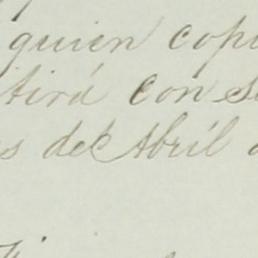 quien copi
tirá con s
s del Abril